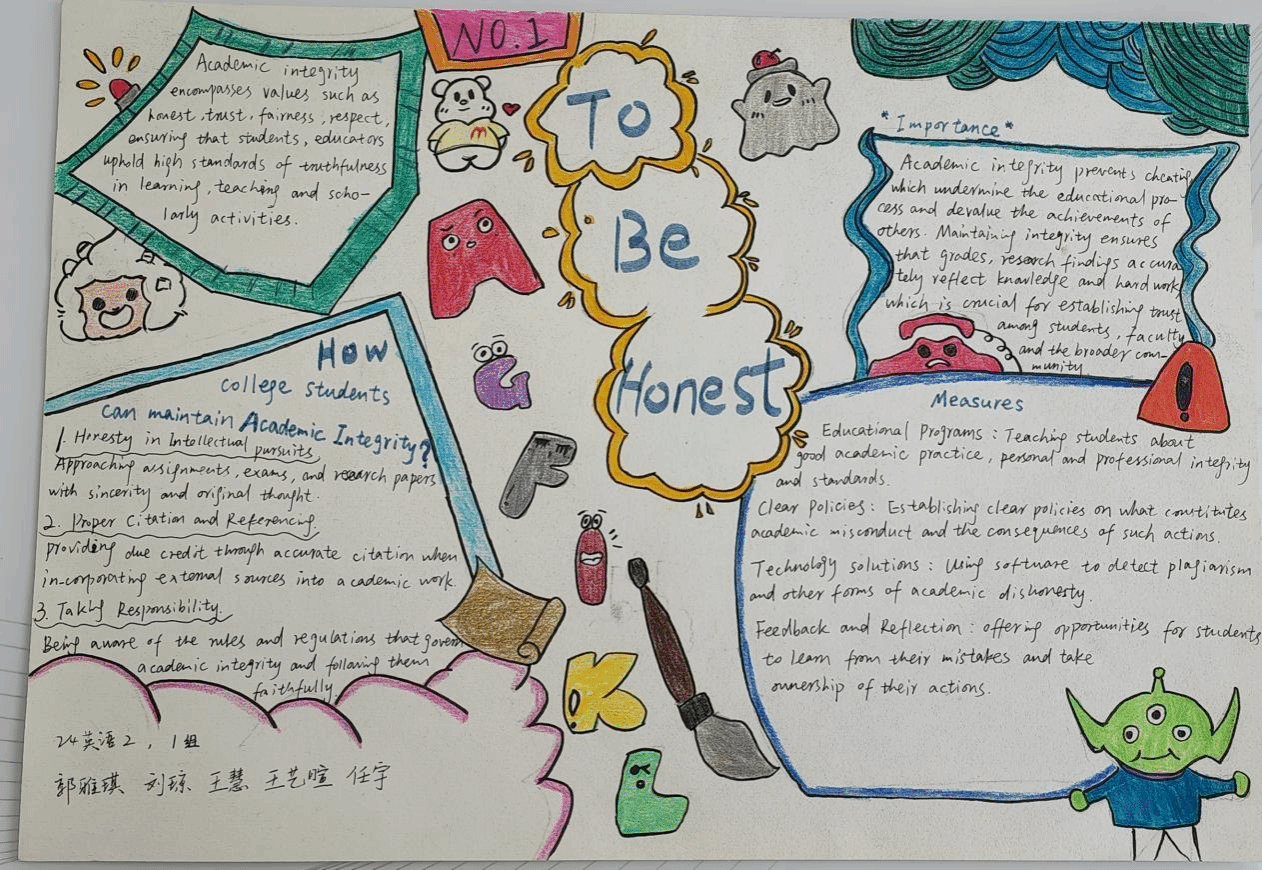 NO.1
To
Be
Honest
Academic integrity
encompasses values such as
honest, trust, fairness, respect,
ensuring that students, educators
uphold high standards of truthfulness
in learning, teaching and scho-
larly activities.
*Importance*
Academic integrity prevents cheating
which undermine the educational pro-
cess and devalue the achievements of
others. Maintaining integrity ensures
that grades, research findings accura
tely reflect knowledge and hard work
which is crucial for establishing trust
among students, faculty
and the broader com-
munity
How
college students
can maintain Academic Integrity?
1. Honesty in Intellectual pursuits,
Approaching assignments, exams, and research papers
with sincerity and original thought.
2. Proper Citation and Referencing.
providing due credit through accurate citation when
in-corporating external sources into academic work.
3. Taking Responsibility.
Being aware of the rules and regulations that govern
academic integrity and following them
faithfully.
Measures
Educational Programs: Teaching students about
good academic practice, personal and professional integrity
and standards.
Clear Policies: Establishing clear policies on what constitutes
academic misconduct and the consequences of such actions.
Technology solutions: Using software to detect plagiarism
and other forms of academic dishonesty.
Feedback and Reflection: offering opportunities for students
to learn from their mistakes and take
ownership of their actions.
A
G
F
I
K
L
M
24英语2，1组
郭雅琪 刘琼 王慧 王艺暄 任宇